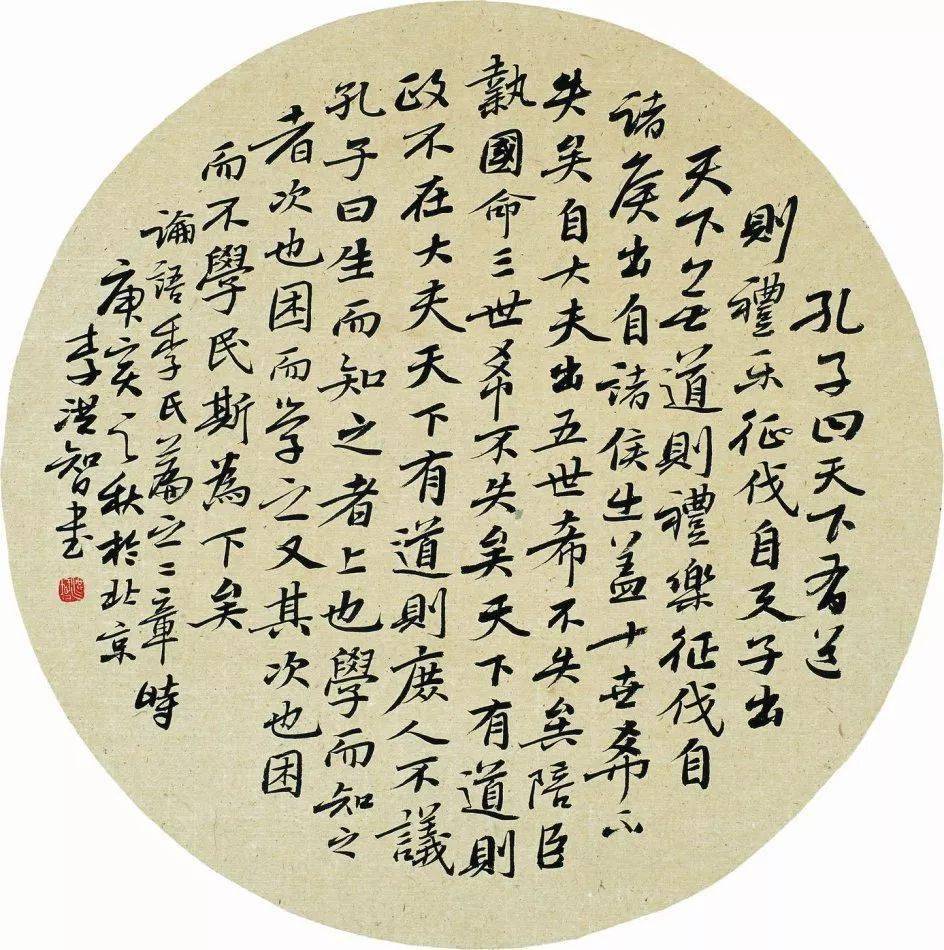 孔子曰天下有道
則禮乐征伐自天子出
天下無道則禮樂征伐自
諸侯出自諸侯出蓋十世希不
失矣自大夫出五世希不失矣陪臣
執國命三世希不失矣天下有道則
政不在大夫天下有道則庶人不議
孔子曰生而知之者上也學而知之
者次也困而学之又其次也困
而不學民斯為下矣
論語季氏篇之二章時
庚寅之秋於北京
李洪智书